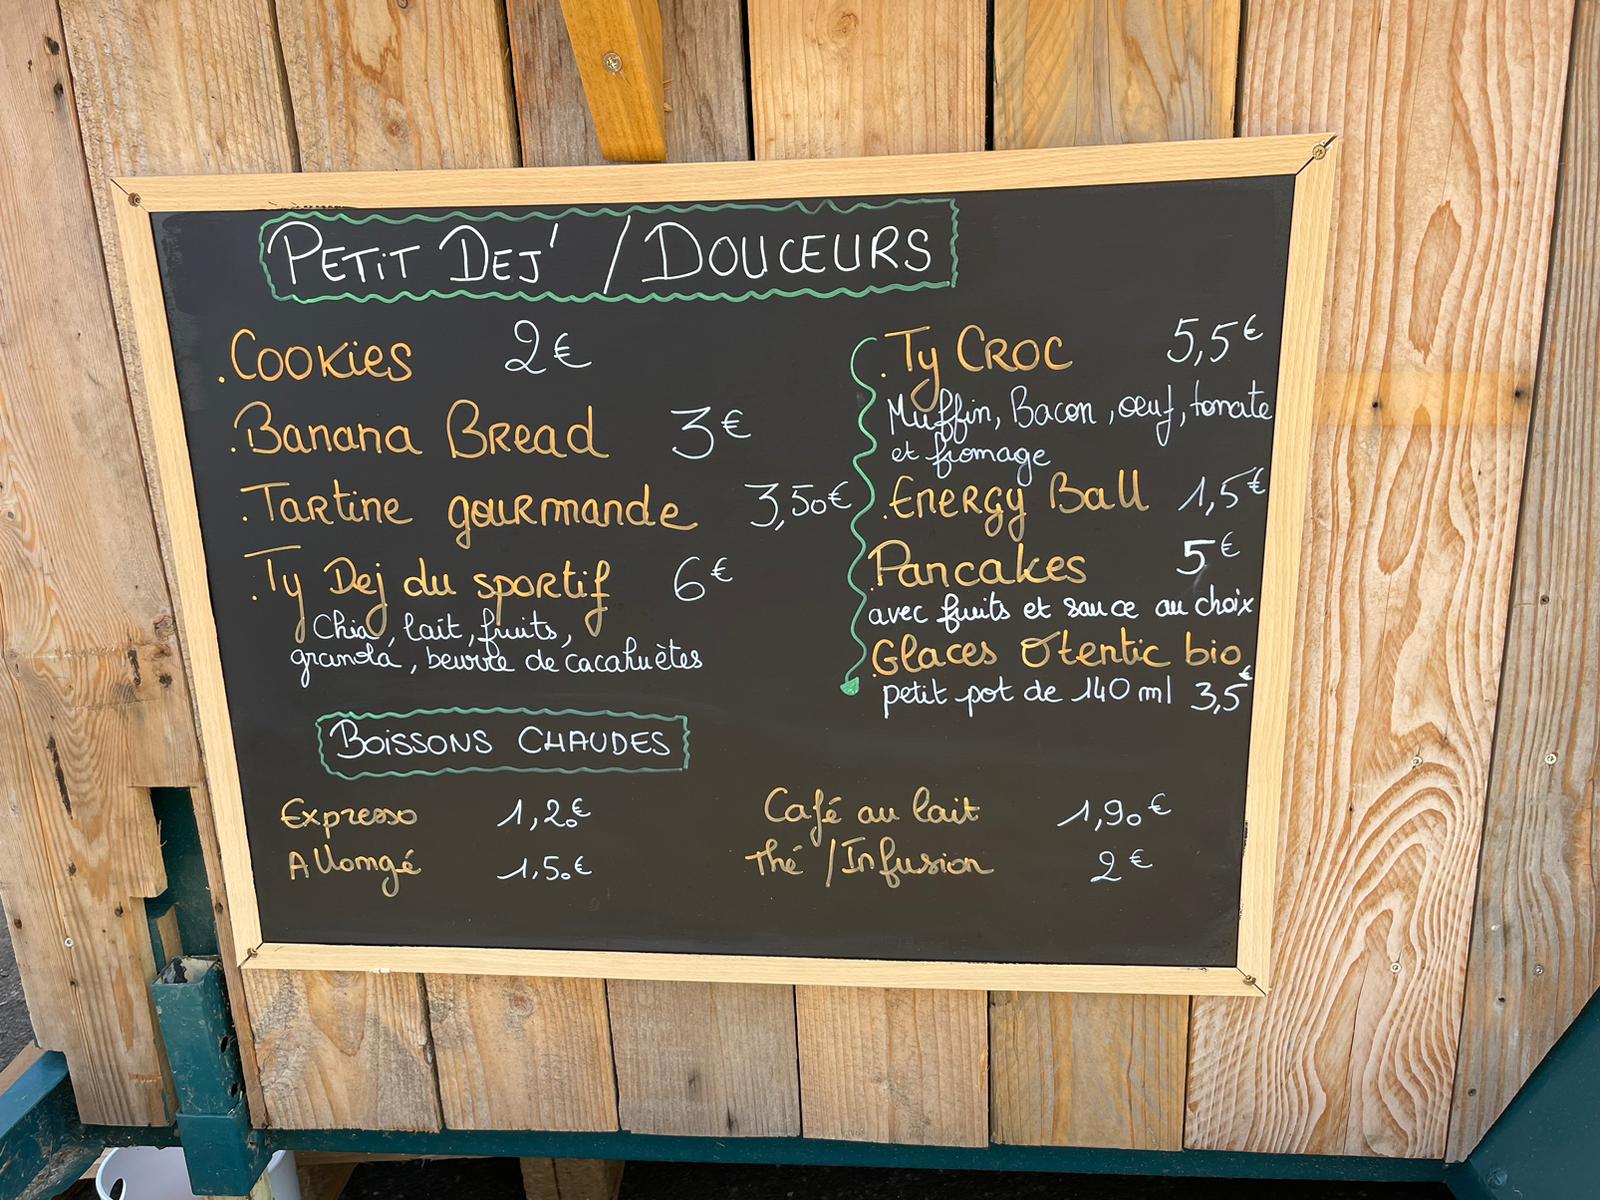 PETIT DEJ' / DOUCEURS
. Cookies 2€
. Banana Bread 3€
. Tartine gourmande 3,50€
. Ty Dej du sportif 6€
Chia, lait, fruits,
granola, beurre de cacahuètes
. Ty CROC 5,5€
Muffin, Bacon, œuf, tomate
et fromage
. Energy Ball 1,5€
. Pancakes 5€
avec fruits et sauce au choix
. Glaces Otentic bio
petit pot de 140 ml 3,5€
BOISSONS CHAUDES
Expresso 1,20€
Allongé 1,50€
Café au lait 1,90€
Thé / Infusion 2€